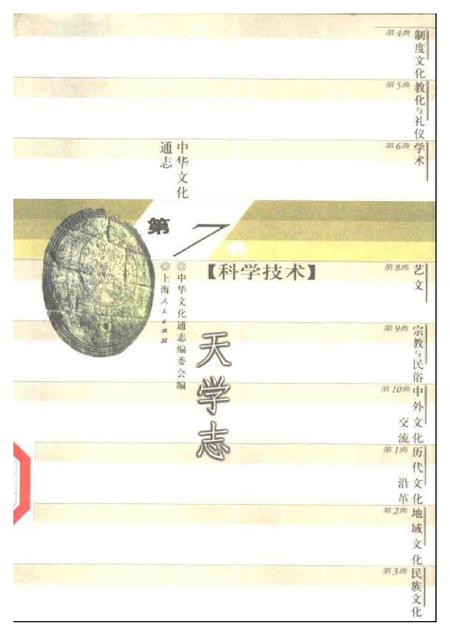 第4典 制度文化
第5典 教化与礼仪
第6典 学术
中华文化
通志
第7典
【科学技术】
◎中华文化通志编委会编
◎上海人民出版社
天学志
第8典 艺文
第9典 宗教与民俗
第10典 中外文化
交流
第1典 历代文化
沿革
第2典 地域文化
第3典 民族文化